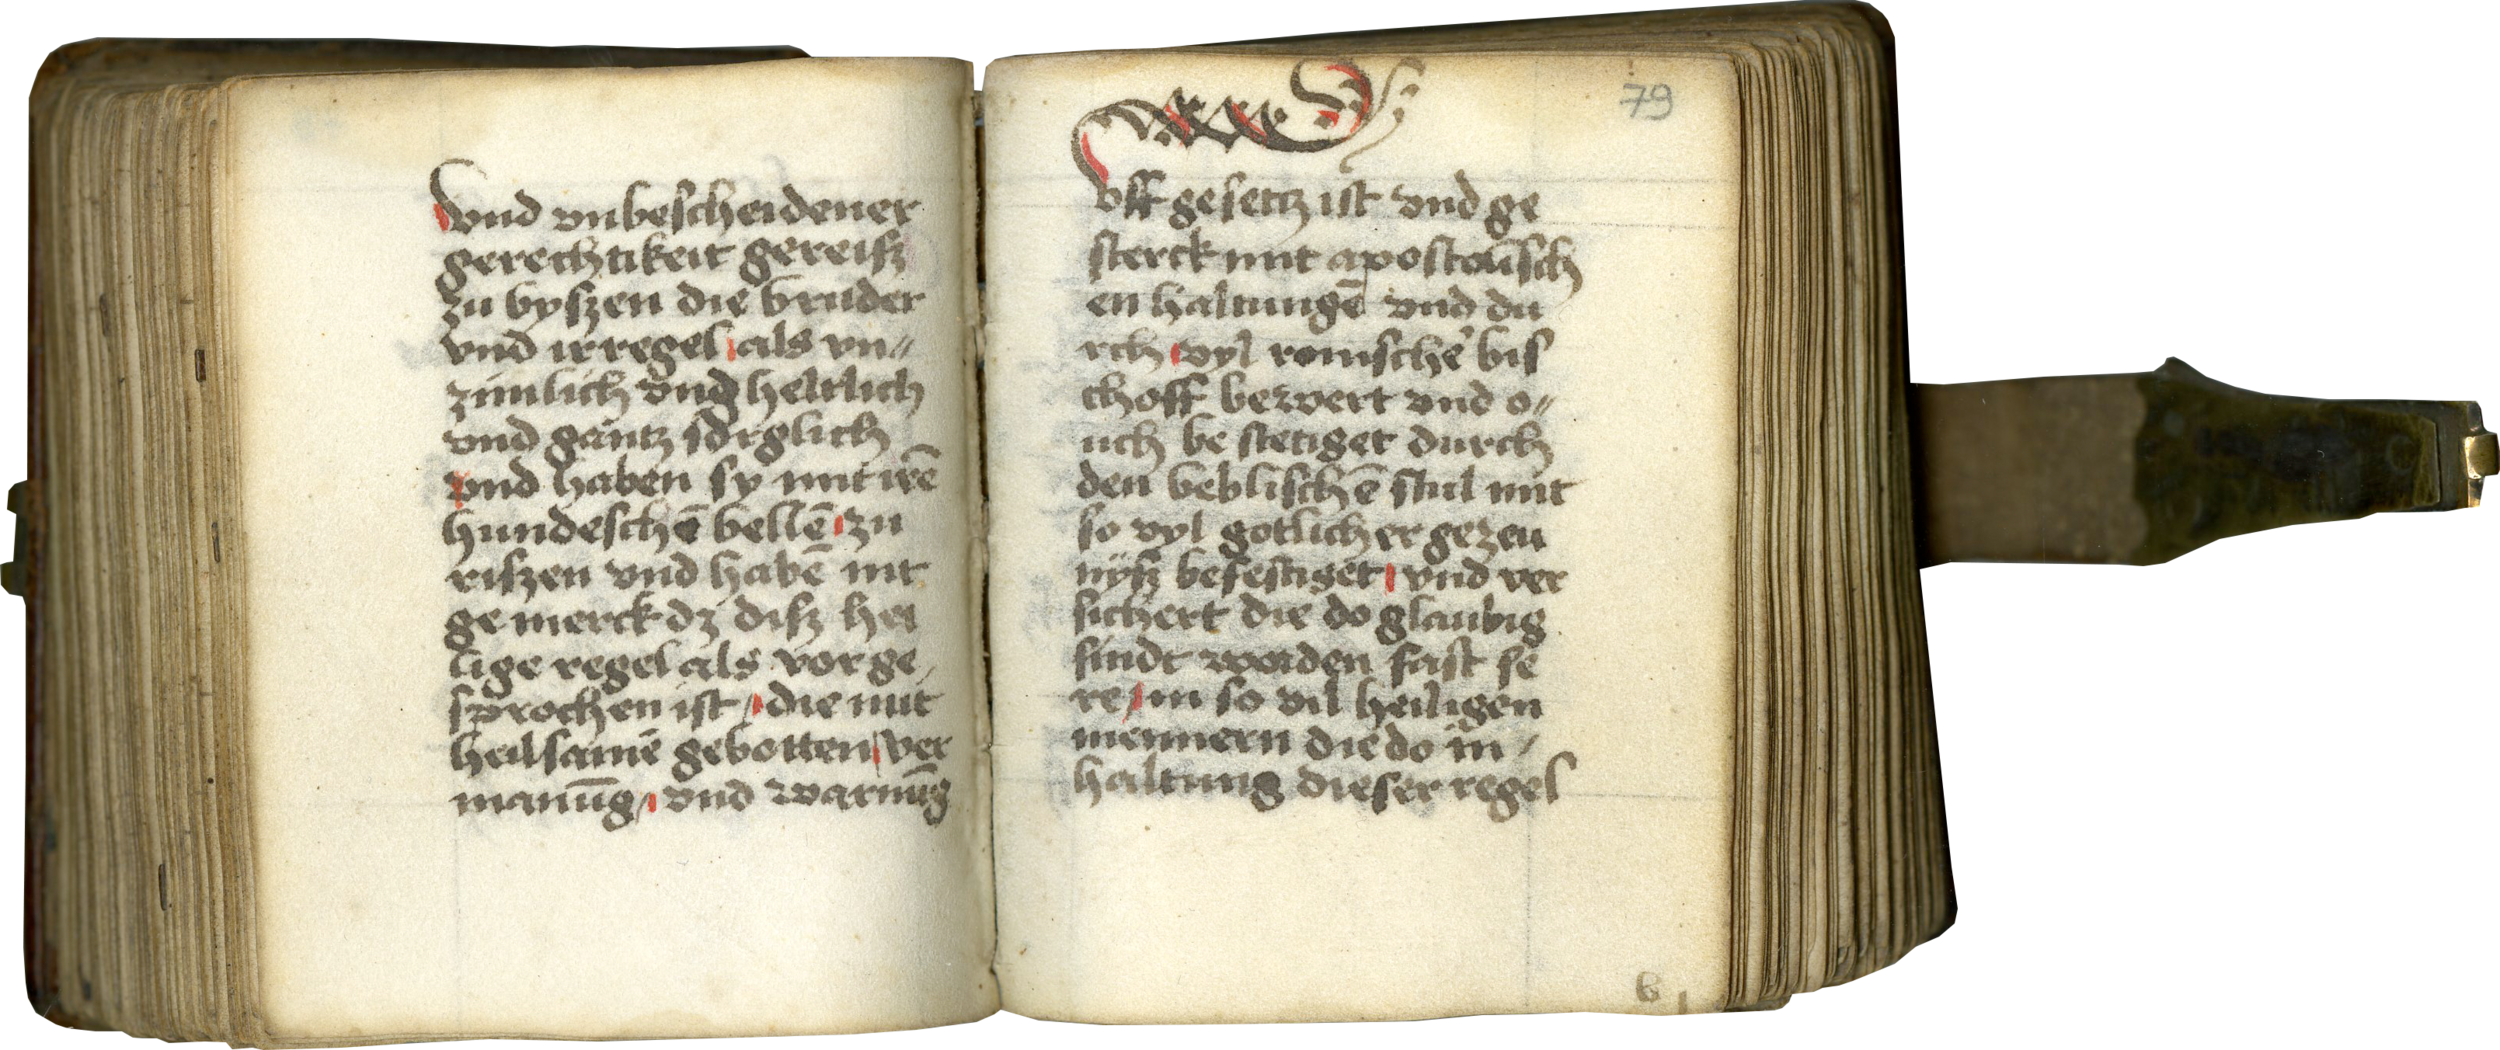 vnd vnbescheidener
gerechtikeit gereisz
zu byszen die bruder
vnd ir regel als vn〃
zimlich vnd heltlich
vnd gantz sorglich
vnd haben sy mit irē
hundeschē bellē zu
riszen vnd habē nit
ge merck dz disz hei
lige regel als vor ge
sprochen ist / die mit
heilsamē gebotten ver
manūg / vnd warnūg
79
vff gesetz ist vnd ge
sterck mit apostolisch
en haltungē vnd du
rch vyl romischer bis
choff bewert vnd o〃
uch be stetiget durch
den beblischē stul mit
so vyl gotlicher gezeu
nysz befestiget vnd ver
sichert die do glaubig
sindt worden fast se
re / in so vil heiligen
mennern die do in /
haltung dieser regel
b